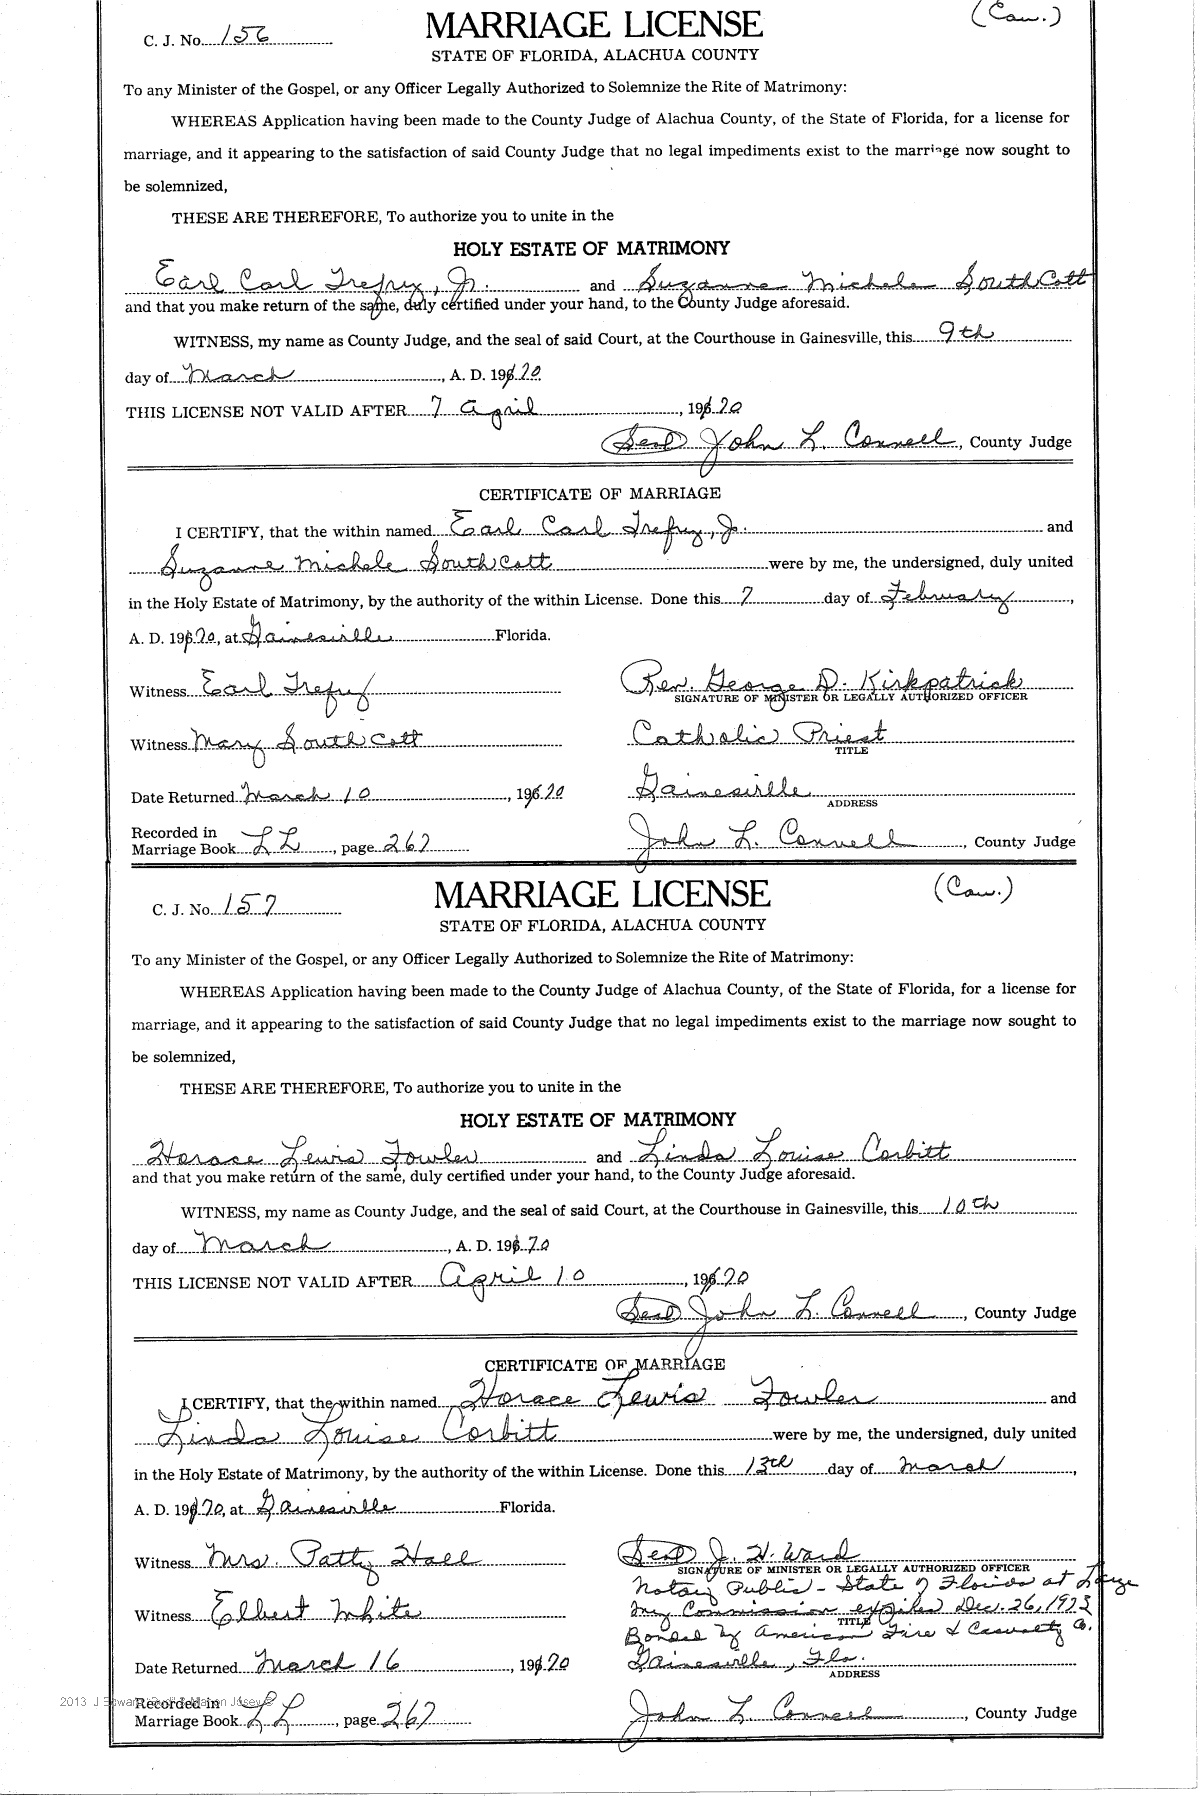 C. J. No. 156
MARRIAGE LICENSE
(Cau.)
STATE OF FLORIDA, ALACHUA COUNTY
To any Minister of the Gospel, or any Officer Legally Authorized to Solemnize the Rite of Matrimony:
WHEREAS Application having been made to the County Judge of Alachua County, of the State of Florida, for a license for
marriage, and it appearing to the satisfaction of said County Judge that no legal impediments exist to the marriage now sought to
be solemnized,
THESE ARE THEREFORE, To authorize you to unite in the
HOLY ESTATE OF MATRIMONY
Earl Carl Trefry, Jr. and Suzanne Michele Southcott
and that you make return of the same, duly certified under your hand, to the County Judge aforesaid.
WITNESS, my name as County Judge, and the seal of said Court, at the Courthouse in Gainesville, this 9th
day of March, A. D. 1970
THIS LICENSE NOT VALID AFTER 7 April, 1970
(Seal) John L. Connell, County Judge
CERTIFICATE OF MARRIAGE
I CERTIFY, that the within named Earl Carl Trefry, Jr. and
Suzanne Michele Southcott were by me, the undersigned, duly united
in the Holy Estate of Matrimony, by the authority of the within License. Done this 7 day of February,
A. D. 1970, at Gainesville Florida.
Witness Earl Trefry
Rev. George D. Kirkpatrick
SIGNATURE OF MINISTER OR LEGALLY AUTHORIZED OFFICER
Witness Mary Southcott
Catholic Priest
TITLE
Date Returned March 10, 1970
Gainesville
ADDRESS
Recorded in
Marriage Book LL, page 267
John L. Connell, County Judge
C. J. No. 157
MARRIAGE LICENSE
(Cau.)
STATE OF FLORIDA, ALACHUA COUNTY
To any Minister of the Gospel, or any Officer Legally Authorized to Solemnize the Rite of Matrimony:
WHEREAS Application having been made to the County Judge of Alachua County, of the State of Florida, for a license for
marriage, and it appearing to the satisfaction of said County Judge that no legal impediments exist to the marriage now sought to
be solemnized,
THESE ARE THEREFORE, To authorize you to unite in the
HOLY ESTATE OF MATRIMONY
Horace Lewis Fowler and Linda Louise Corbitt
and that you make return of the same, duly certified under your hand, to the County Judge aforesaid.
WITNESS, my name as County Judge, and the seal of said Court, at the Courthouse in Gainesville, this 10th
day of March, A. D. 1970
THIS LICENSE NOT VALID AFTER April 10, 1970
(Seal) John L. Connell, County Judge
CERTIFICATE OF MARRIAGE
I CERTIFY, that the within named Horace Lewis Fowler and
Linda Louise Corbitt were by me, the undersigned, duly united
in the Holy Estate of Matrimony, by the authority of the within License. Done this 13th day of March,
A. D. 1970, at Gainesville Florida.
Witness Mrs. Patty Hall
(Seal) J. H. Ward
SIGNATURE OF MINISTER OR LEGALLY AUTHORIZED OFFICER
Notary Public - State of Florida at Large
Witness Elbert White
My Commission expires Dec. 26, 1973
TITLE
Bonded by American Fire & Casualty Co.
Date Returned March 16, 1970
Gainesville, Fla.
ADDRESS
2013 J
Recorded in
Marriage Book LL, page 267
John L Connell, County Judge